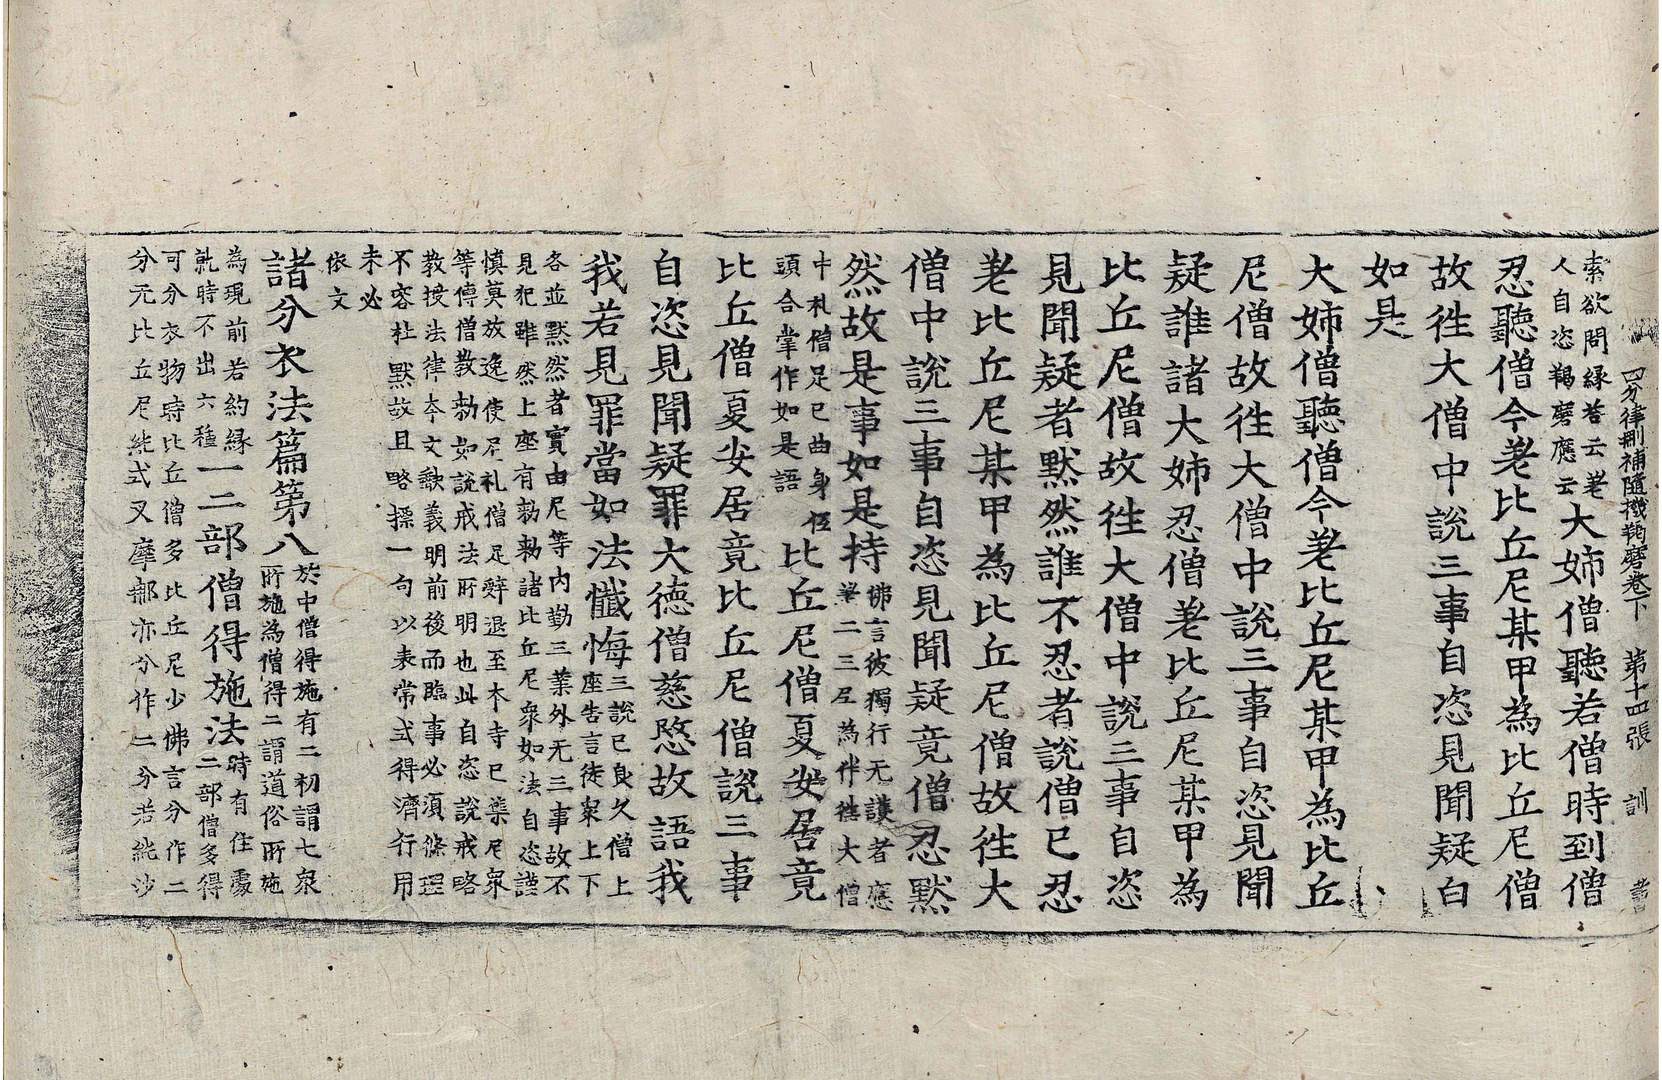 四分律刪補隨機羯磨卷下 第十四張 訓
索欲問緣答云差
人自恣羯磨應云
大姊僧聽若僧時到僧
忍聽僧今差比丘尼某甲為比丘尼僧
故往大僧中說三事自恣見聞疑白
如是
大姊僧聽僧今差比丘尼某甲為比丘
尼僧故往大僧中說三事自恣見聞
疑誰諸大姊忍僧差比丘尼某甲為
比丘尼僧故往大僧中說三事自恣
見聞疑者默然誰不忍者說僧已忍
差比丘尼某甲為比丘尼僧故往大
僧中說三事自恣見聞疑竟僧忍默
然故是事如是持
佛言彼獨行无護者應
差二三尼為伴往大僧
中礼僧足已曲身低
頭合掌作如是語
比丘尼僧夏安居竟
比丘僧夏安居竟比丘尼僧說三事
自恣見聞疑罪大德僧慈愍故語我
我若見罪當如法懺悔
三說已良久僧上
座告言徒眾上下
各並默然者實由尼等內勤三業外无三事故不
見犯雖然上座有勑勑諸比丘尼眾如法自恣謹
慎莫放逸使尼礼僧足辤退至本寺已集尼眾
等傳僧教勑如說戒法所明也此自恣說戒略
教授法律本文缺義明前後而臨事必須條理
不容杜默故且略摽一句以表常式得濟行用
未必
依文
諸分衣法篇第八
於中僧得施有二初謂七眾
所施為僧得二謂道俗所施
為現前若約緣
就時不出六種
一二部僧得施法
時有住處
二部僧多得
可分衣物時比丘僧多比丘尼少佛言分作二
分无比丘尼純式叉摩那亦分作二分若純沙